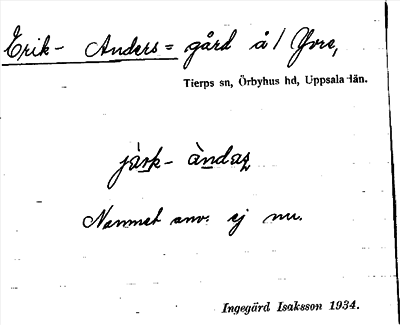 Erik- Anders= gård å / Yvre,
Tierps sn, Örbyhus hd, Uppsala län.
jä̀rk- àndas
Namnet anv. ej nu.
Ingegärd Isaksson 1934.